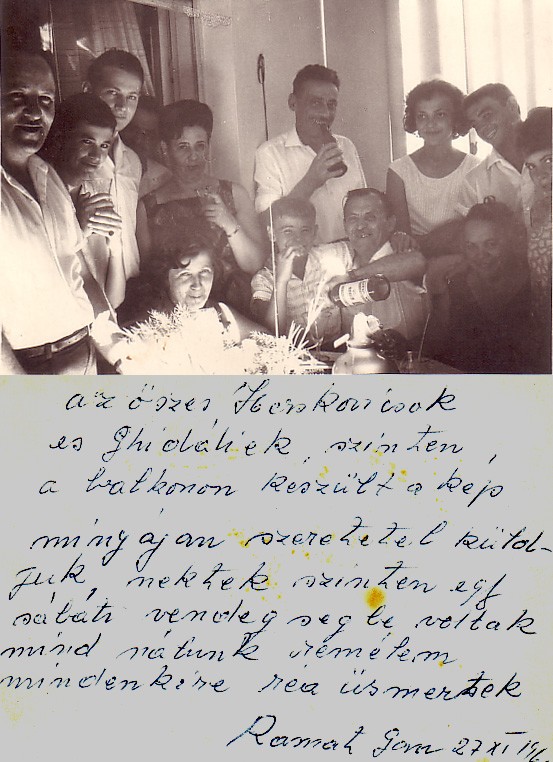 az őszes Herskovicsok
es Ghidáliek, szinten,
a balkonon készült a kép
mingájan szeretetel küld-
juk, nektek szinten egy
sábáti vendeg segbe voltak
mind nálunk remélem
mindenkire réa üsmertek
Ramat Gan 27 XI 196